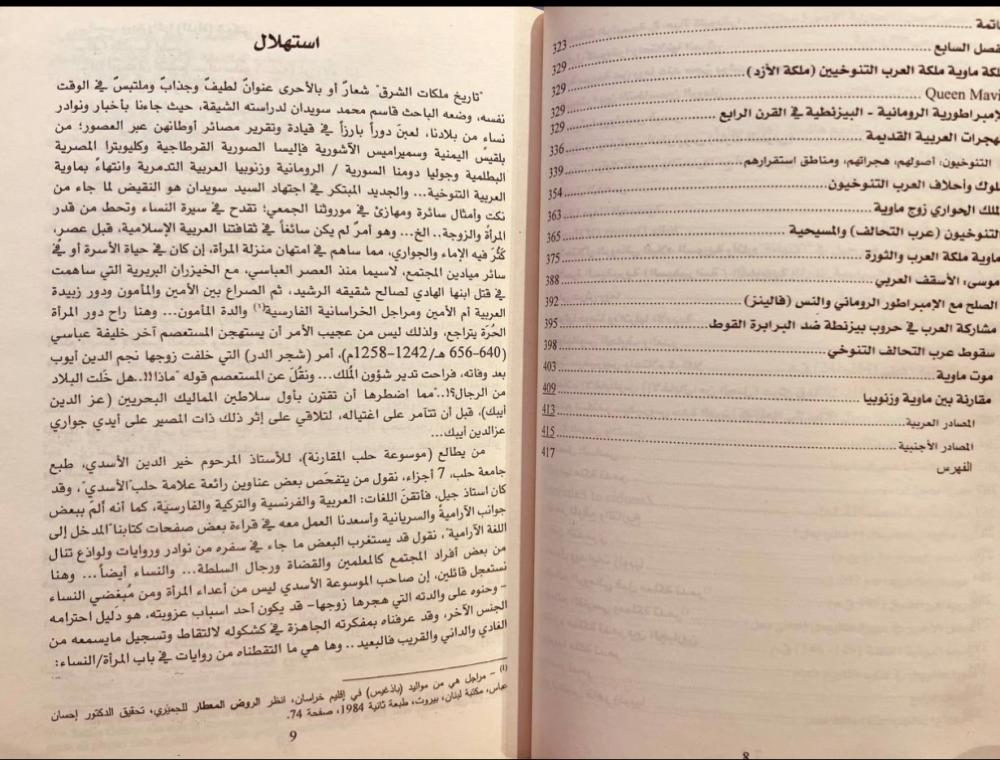 اتمة ... 323
فصل السابع ... 329
لكة ماوية ملكة العرب التنوخيين (ملكة الأزد) ... 329
Queen Mavi ... 329
لإمبراطورية الرومانية - البيزنطية في القرن الرابع ... 329
هجرات العربية القديمة ... 336
التنوخيون؛ أصولهم، هجراتهم، ومناطق استقرارهم ... 339
لوك وأحلاف العرب التنوخيون ... 354
لملك الحواري زوج ماوية ... 363
التنوخيون (عرب التحالف) والمسيحية ... 365
ماوية ملكة العرب والثورة ... 375
موسى: الأسقف العربي ... 388
الصلح مع الإمبراطور الروماني والنس (فالينز) ... 392
مشاركة العرب في حروب بيزنطة ضد البرابرة القوط ... 395
سقوط عرب التحالف التنوخي ... 398
موت ماوية ... 403
مقارنة بين ماوية وزنوبيا ... 409
المصادر العربية ... 413
المصادر الأجنبية ... 415
الفهرس 417
8
استهلال
"تاريخ ملكات الشرق" شعارٌ أو بالأحرى عنوانٌ لطيفٌ وجذابٌ وملتبسٌ في الوقت
نفسه، وضعه الباحث قاسم محمد سويدان لدراسته الشيقة، حيث جاءنا بأخبار ونوادر
نساء من بلادنا، لعبن دوراً بارزاً في قيادة وتقرير مصائر أوطانهن عبر العصور؛ من
بلقيسَ اليمنية وسميراميس الآشورية فإليسا الصورية القرطاجية وكليوبترا المصرية
البطلمية وجوليا دومنا السورية / الرومانية وزنوبيا العربية التدمرية وانتهاءً بماوية
العربية التنوخية... والجديد المبتكر في اجتهاد السيد سويدان هو النقيض لما جاء من
نكت وأمثال سائرة ومهازئ في موروثنا الجمعي؛ تقدح في سيرة النساء وتحط من قدر
المرأة والزوجة.. الخ... وهو أمرٌ لم يكن سائغاً في ثقافتنا العربية الإسلامية، قبل عصر،
كَثُرَ فيه الإماء والجواري، مما ساهم في امتهان منزلة المرأة، إن كان في حياة الأسرة أو في
سائر ميادين المجتمع، لاسيما منذ العصر العباسي، مع الخيزران البربرية التي ساهمت
في قتل ابنها الهادي لصالح شقيقه الرشيد، ثم الصراع بين الأمين والمأمون ودور زبيدة
العربية أم الأمين ومراجل الخراسانية الفارسية(1) والدة المأمون... وهنا راح دور المرأة
الحُرّة يتراجع، ولذلك ليس من عجيب الأمر أن يستهجن المستعصم آخر خليفة عباسي
(640-656 هـ/1242-1258م)، أمر (شجر الدر) التي خلفت زوجها نجم الدين أيوب
بعد وفاته، فراحت تدير شؤون المُلك... ونقُلَ عن المستعصم قوله "ماذا!!..هل خَلَت البلاد
من الرجال؟!.."مما اضطرها أن تقترن بأول سلاطين المماليك البحريين (عز الدين
أيبك)، قبل أن تتآمر على اغتياله، لتلاقي على إثر ذلك ذات المصير على أيدي جواري
عزالدين أيبك...
من يطالع (موسوعة حلب المقارنة)، للأستاذ المرحوم خير الدين الأسدي، طبع
جامعة حلب، 7 أجزاء، نقول من يتفحّص بعض عناوين رائعة علامة حلب"الأسدي"، وقد
كان أستاذ جيل، فأتقنَ اللغات: العربية والفرنسية والتركية والفارسيّة، كما أنه ألمّ ببعض
جوانب الآراميةُ والسريانية وأسعدنا العمل معه في قراءة بعض صفحات كتابنا"المدخل إلى
اللغة الآرامية"، نقول قد يستغرب البعض ما جاء في سفره من نوادر وروايات ولواذع تنال
من بعض أفراد المجتمع كالمعلمين والقضاة ورجال السلطة... والنساء أيضاً... وهنا
نستعجل قائلين، إن صاحب الموسوعة الأسدي ليس من أعداء المرأة ومن مبغضي النساء
- وحنوه على والدته التي هجرها زوجها- قد يكون أحد أسباب عزوبته، هو دَليل احترامه
الجنس الآخر، وقد عرفناه بمفكرته الجاهزة في كشكوله لالتقاط وتسجيل مايسمعه من
الغادي والداني والقريب فالبعيد .. وها هي ما التقطناه من روايات في باب المرأة/النساء:
(1) - مراجل هي من مواليد (باذغيس) في إقليم خراسان، انظر الروض المعطار للحميَري، تحقيق الدكتور إحسان
عباس، مكتبة لبنان، بيروت، طبعة ثانية 1984، صفحة 74.
9